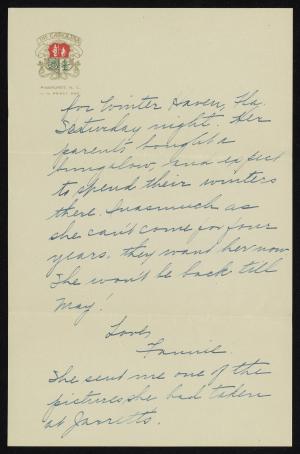 THE CAROLINA
PINEHURST, N. C.
for Winter Haven, Fla.
Saturday night. Her
parents bought a
bungalow, and expect
to spend their winters
there. Inasmuch as
she can't come for four
years. they want her now
She won't be back till
May!
Love,
Fannie.
She sent me one of the
pictures she had taken
at Jarretts.